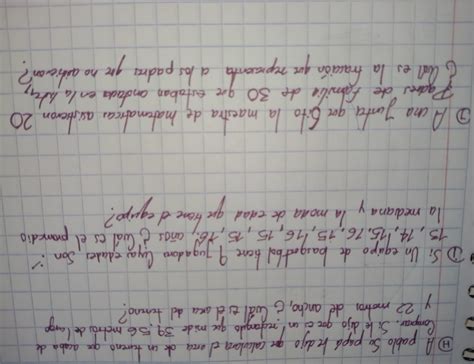 H A pablo Su papa le dijo que calculara el area de un terreno que acaba de
Comprar. Si le dijo que es un rectangulo que mide 39.56 metros de largo
y 22 metros del ancho, ¿Cuál es el area del terreno?
Si: Un equipo de basquetbol tiene 9 jugadores Cuyas edades Son :
15, 14, 15, 16, 15, 16, 15, 15, 16, años ¿Cuál es el promedio
la mediana y la moda de edad que tiene el equipo?
A una Junta que Cito la maestra de matematicas asistieron 20
Padres de familia de 30 que estaban anotados en la lista,
¿Cuál es la fracción que representa a los padres que no asistieron?